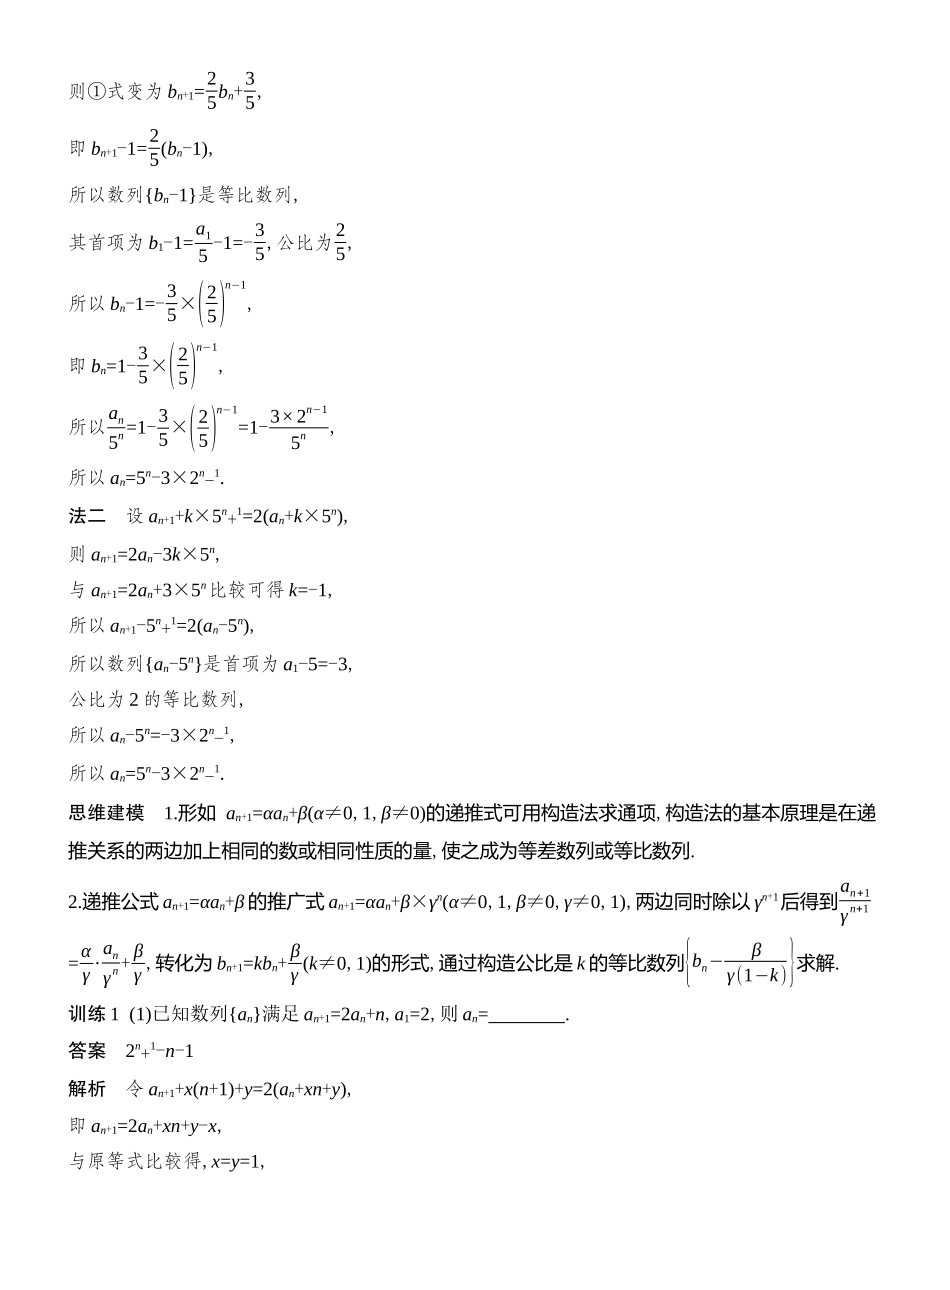 则①式变为 bₙ₊₁=2/5bₙ+3/5,
即 bₙ₊₁−1=2/5(bₙ−1),
所以数列{bₙ−1}是等比数列,
其首项为 b₁−1=a₁/5−1=−3/5, 公比为2/5,
所以 bₙ−1=−3/5×(2/5)^(n−1),
即 bₙ=1−3/5×(2/5)^(n−1),
所以aₙ/5ⁿ=1−3/5×(2/5)^(n−1)=1−(3×2^(n−1))/5ⁿ,
所以 aₙ=5ⁿ−3×2ⁿ₋¹.
法二 设 aₙ₊₁+k×5ⁿ₊¹=2(aₙ+k×5ⁿ),
则 aₙ₊₁=2aₙ−3k×5ⁿ,
与 aₙ₊₁=2aₙ+3×5ⁿ比较可得 k=−1,
所以 aₙ₊₁−5ⁿ₊¹=2(aₙ−5ⁿ),
所以数列{aₙ−5ⁿ}是首项为 a₁−5=−3,
公比为 2 的等比数列,
所以 aₙ−5ⁿ=−3×2ⁿ₋¹,
所以 aₙ=5ⁿ−3×2ⁿ₋¹.
思维建模 1.形如 aₙ₊₁=αaₙ+β(α≠0, 1, β≠0)的递推式可用构造法求通项, 构造法的基本原理是在递
推关系的两边加上相同的数或相同性质的量, 使之成为等差数列或等比数列.
2.递推公式 aₙ₊₁=αaₙ+β 的推广式 aₙ₊₁=αaₙ+β×γⁿ(α≠0, 1, β≠0, γ≠0, 1), 两边同时除以 γⁿ⁺¹后得到aₙ₊₁/γⁿ⁺¹
=α/γ·aₙ/γⁿ+β/γ, 转化为 bₙ₊₁=kbₙ+β/γ(k≠0, 1)的形式, 通过构造公比是 k 的等比数列{bₙ−β/(γ(1−k))}求解.
训练 1 (1)已知数列{aₙ}满足 aₙ₊₁=2aₙ+n, a₁=2, 则 aₙ=________.
答案 2ⁿ₊¹−n−1
解析 令 aₙ₊₁+x(n+1)+y=2(aₙ+xn+y),
即 aₙ₊₁=2aₙ+xn+y−x,
与原等式比较得, x=y=1,